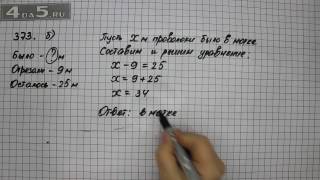 4da5.ru
373. б)
Было - ? м
Отрезали - 9 м
Осталось - 25 м
Пусть x м проволоки было в мотке.
Составим и решим уравнение:
x - 9 = 25
x = 9 + 25
x = 34
Ответ: в мотке